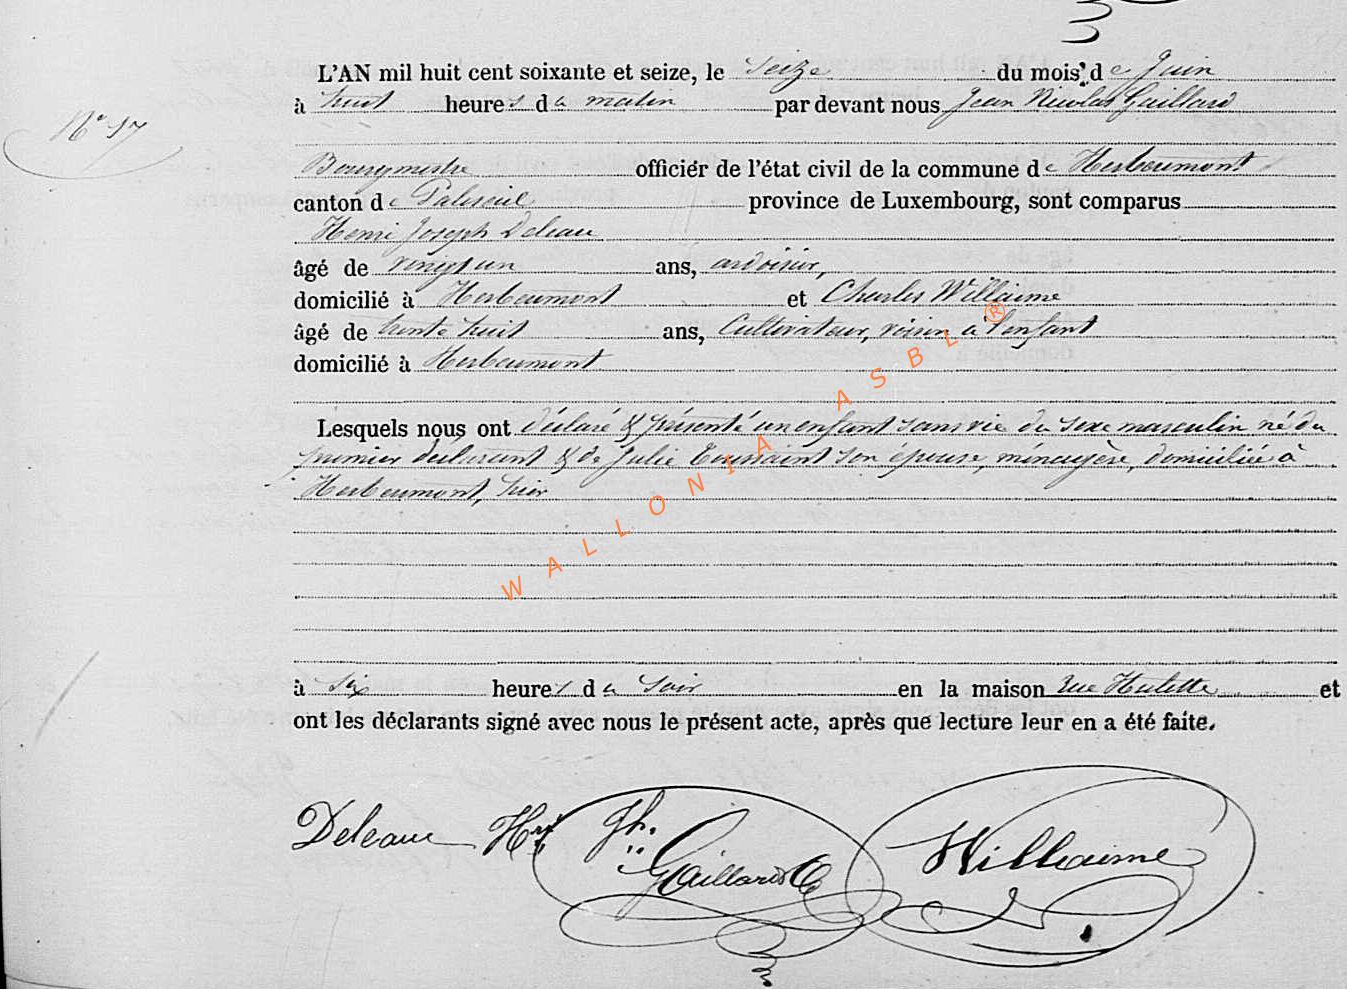 L'AN mil huit cent soixante et seize, le Seize du mois de Juin
à huit heures du matin par devant nous Jean Nicolas Gaillard
N° 17
Bourgmestre officier de l'état civil de la commune de Herbeumont
canton de Paliseul province de Luxembourg, sont comparus
Henri Joseph Deleau
âgé de vingt un ans, ardoisier,
domicilié à Herbeumont et Charles Willaime
âgé de trente huit ans, Cultivateur, voisin à l'enfant
domicilié à Herbeumont
Lesquels nous ont déclaré & présenté un enfant sans vie du sexe masculin né du
premier déclarant & de Julie Toussaint son épouse, ménagère, domiciliée à
Herbeumont, hier
à six heures du soir en la maison rue Hulette et
ont les déclarants signé avec nous le présent acte, après que lecture leur en a été faite.
Deleau Hri Gaillard Willaime
WALLONIA ASBL ®